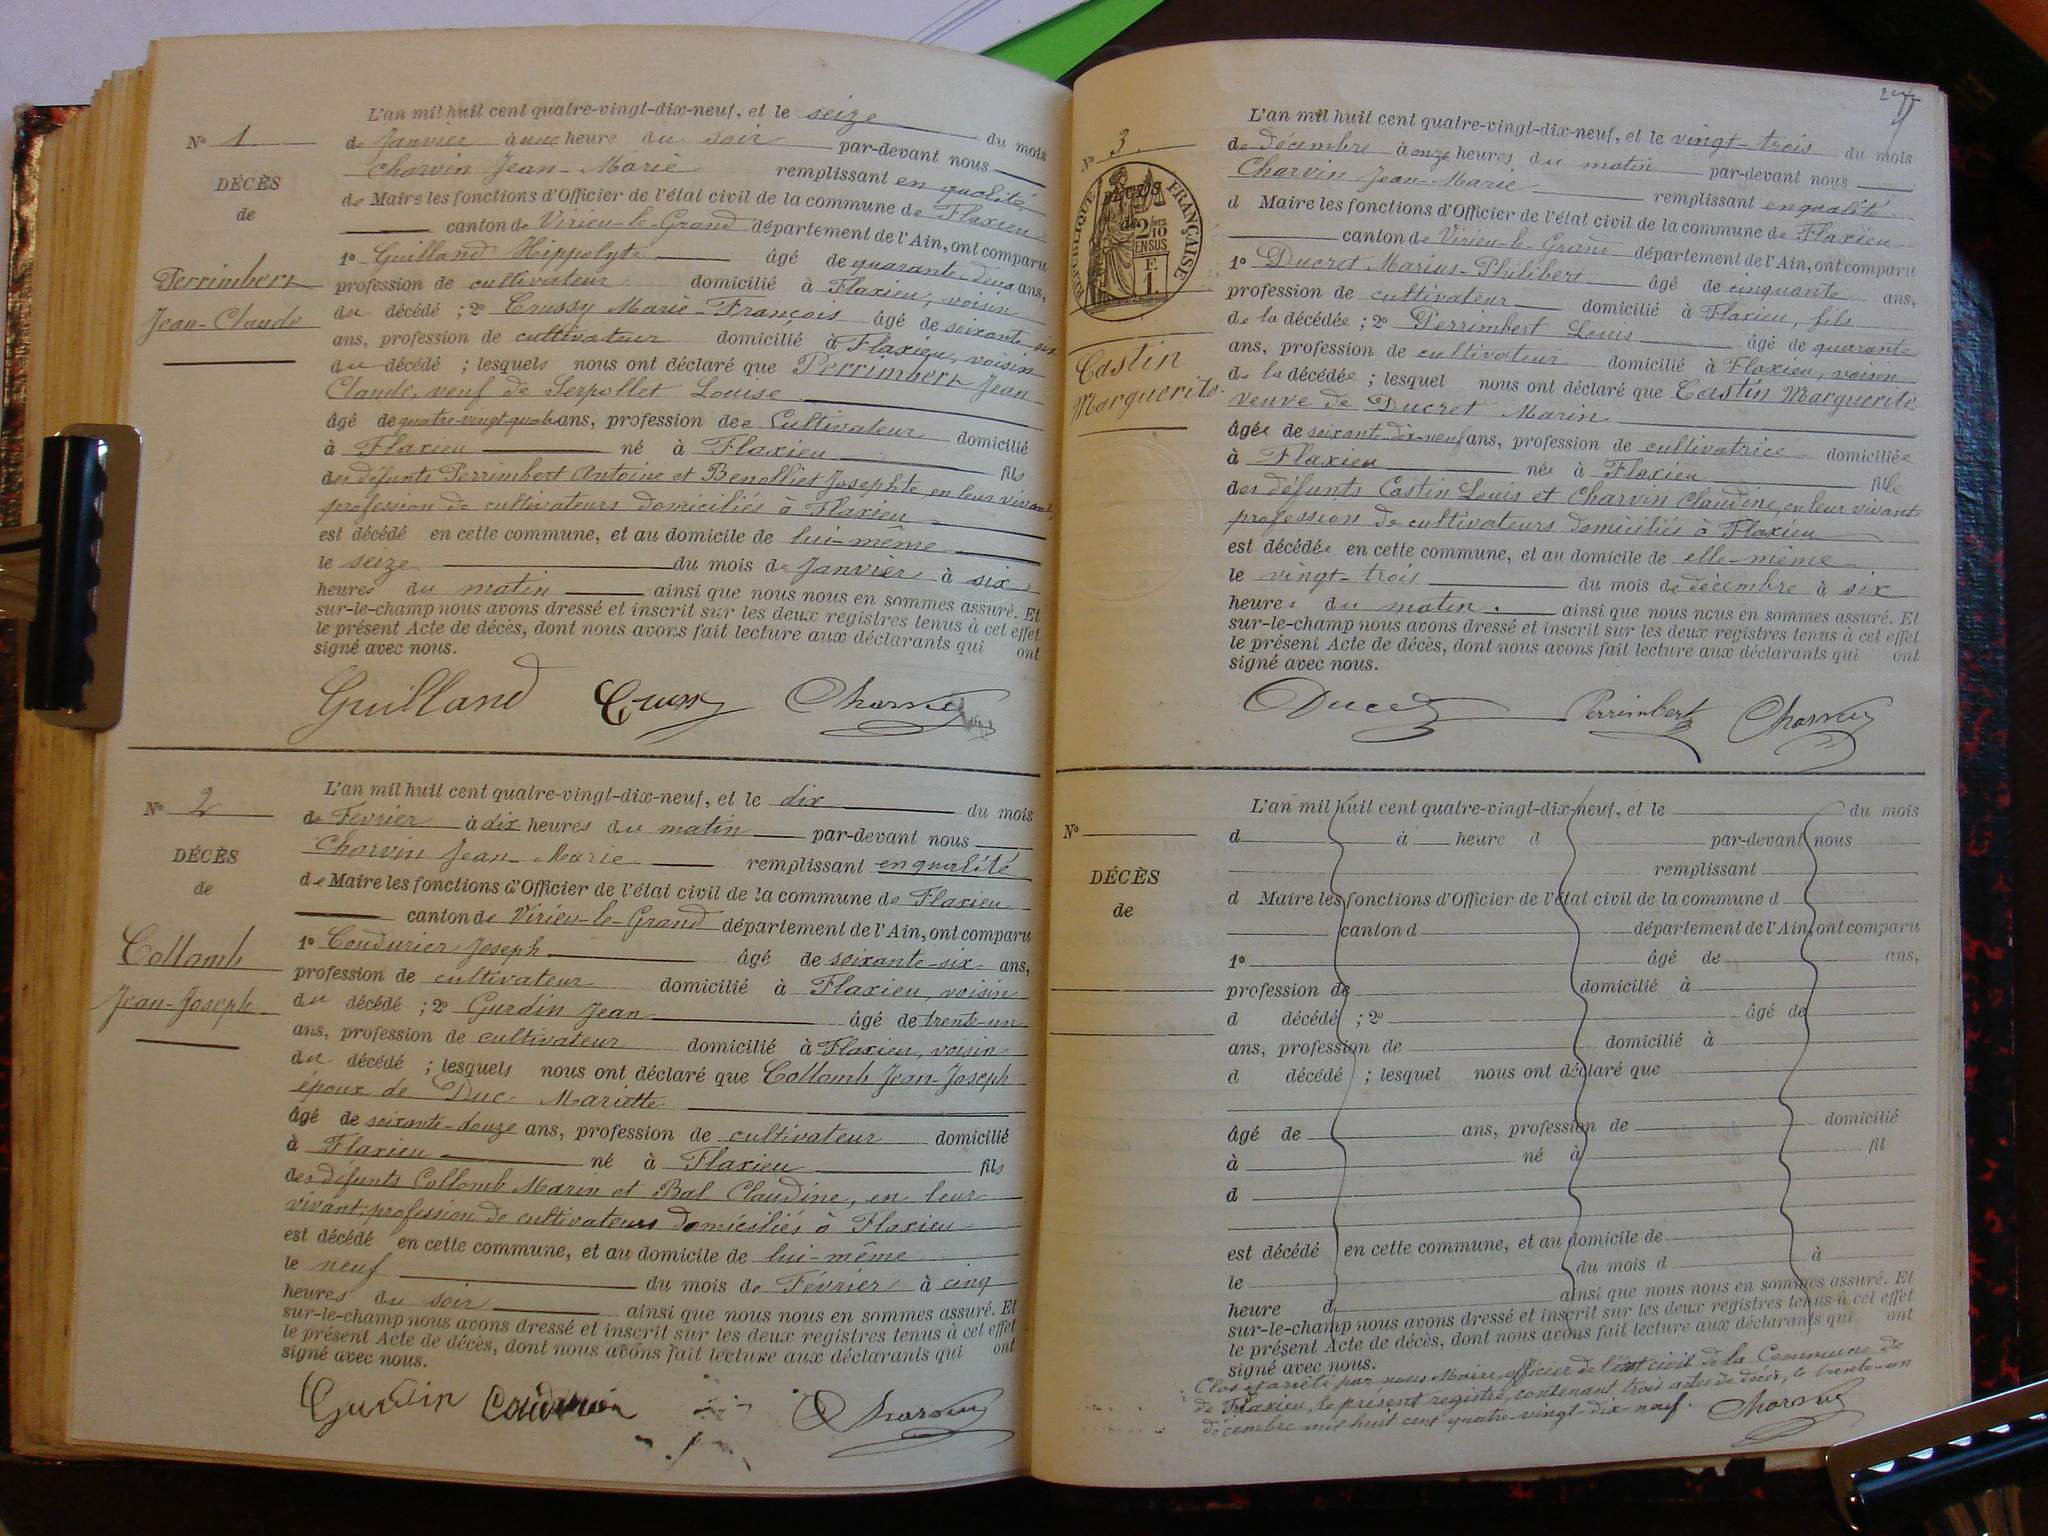 L'an mil huit cent quatre-vingt-dix-neuf, et le seize du mois
N° 1
de Janvier à une heure du soir par-devant nous
Charvin Jean-Marie remplissant en qualité
DÉCÈS
de Maire les fonctions d'Officier de l'état civil de la commune de Flaxieu
de
canton de Virieu-le-Grand département de l'Ain, ont comparu
1° Guilland Hippolyte âgé de quarante-deux ans,
Perrimbert
profession de cultivateur domicilié à Flaxieu, voisin
Jean-Claude
du décédé ; 2° Crussy Marie-François âgé de soixante-six
ans, profession de cultivateur domicilié à Flaxieu, voisin
du décédé ; lesquels nous ont déclaré que Perrimbert Jean
Claude, veuf de Serpollet Louise
âgé de quatre-vingt-quatre ans, profession de Cultivateur domicilié
à Flaxieu né à Flaxieu fils
des défunts Perrimbert Antoine et Benolliet Josephte, en leur vivant,
profession de cultivateurs domiciliés à Flaxieu
est décédé en cette commune, et au domicile de lui-même
le seize du mois de Janvier à six
heures du matin ainsi que nous nous en sommes assuré. Et
sur-le-champ nous avons dressé et inscrit sur les deux registres tenus à cet effet
le présent Acte de décès, dont nous avons fait lecture aux déclarants qui ont
signé avec nous.
Guilland Charvin
L'an mil huit cent quatre-vingt-dix-neuf, et le dix du mois
N° 2
de Février à dix heures du matin par-devant nous
Charvin Jean-Marie remplissant en qualité
DÉCÈS
de Maire les fonctions d'Officier de l'état civil de la commune de Flaxieu
de
canton de Virieu-le-Grand département de l'Ain, ont comparu
Collomb
1° Coudurier Joseph âgé de soixante-six ans,
profession de cultivateur domicilié à Flaxieu, voisin
Jean-Joseph
du décédé ; 2° Gurdin Jean âgé de trente-un
ans, profession de cultivateur domicilié à Flaxieu, voisin
du décédé ; lesquels nous ont déclaré que Collomb Jean-Joseph
époux de Duc Mariette
âgé de soixante-douze ans, profession de cultivateur domicilié
à Flaxieu né à Flaxieu fils
des défunts Collomb Marin et Bal Claudine, en leur
vivant, profession de cultivateurs domiciliés à Flaxieu
est décédé en cette commune, et au domicile de lui-même
le neuf du mois de Février à cinq
heures du soir ainsi que nous nous en sommes assuré. Et
sur-le-champ nous avons dressé et inscrit sur les deux registres tenus à cet effet
le présent Acte de décès, dont nous avons fait lecture aux déclarants qui ont
signé avec nous.
Gurdin Coudurier Charvin
L'an mil huit cent quatre-vingt-dix-neuf, et le vingt-trois du mois
N° 3
de décembre à onze heures du matin par-devant nous
Charvin Jean-Marie remplissant en qualité
d Maire les fonctions d'Officier de l'état civil de la commune de Flaxieu
RÉPUBLIQUE FRANÇAISE
2/10 EN SUS
F. 1
canton de Virieu-le-Grand département de l'Ain, ont comparu
1° Ducret Marius-Philibert âgé de cinquante ans,
profession de cultivateur domicilié à Flaxieu, fils
de la décédée ; 2° Perrimbert Louis âgé de quarante
Castin
ans, profession de cultivateur domicilié à Flaxieu, voisin
Marguerite
de la décédée ; lesquel nous ont déclaré que Castin Marguerite
veuve de Ducret Marin
âgée de soixante-dix-neuf ans, profession de cultivatrice domiciliée
à Flaxieu née à Flaxieu fille
des défunts Castin Louis et Charvin Claudine, en leur vivant
profession de cultivateurs domiciliés à Flaxieu
est décédée en cette commune, et au domicile de elle-même
le vingt-trois du mois de décembre à six
heures du matin. ainsi que nous nous en sommes assuré. Et
sur-le-champ nous avons dressé et inscrit sur les deux registres tenus à cet effet
le présent Acte de décès, dont nous avons fait lecture aux déclarants qui ont
signé avec nous.
Ducret Perrimbert Charvin
L'an mil huit cent quatre-vingt-dix-neuf, et le du mois
N°
d à heure d par-devant nous
remplissant
DÉCÈS
d Maire les fonctions d'Officier de l'état civil de la commune d
de
canton d département de l'Ain, ont comparu
1° âgé de ans,
profession de domicilié à
d décédé ; 2° âgé de
ans, profession de domicilié à
d décédé ; lesquel nous ont déclaré que
âgé de ans, profession de domicilié
à né à fil
d
est décédé en cette commune, et au domicile de
le du mois d à
heure d ainsi que nous nous en sommes assuré. Et
sur-le-champ nous avons dressé et inscrit sur les deux registres tenus à cet effet
le présent Acte de décès, dont nous avons fait lecture aux déclarants qui ont
signé avec nous.
Clos et arrêté par nous Maire, officier de l'état civil de la Commune de
de Flaxieu, le présent registre, contenant trois actes de décès, le trente-un
décembre mil huit cent quatre-vingt-dix-neuf. Charvin